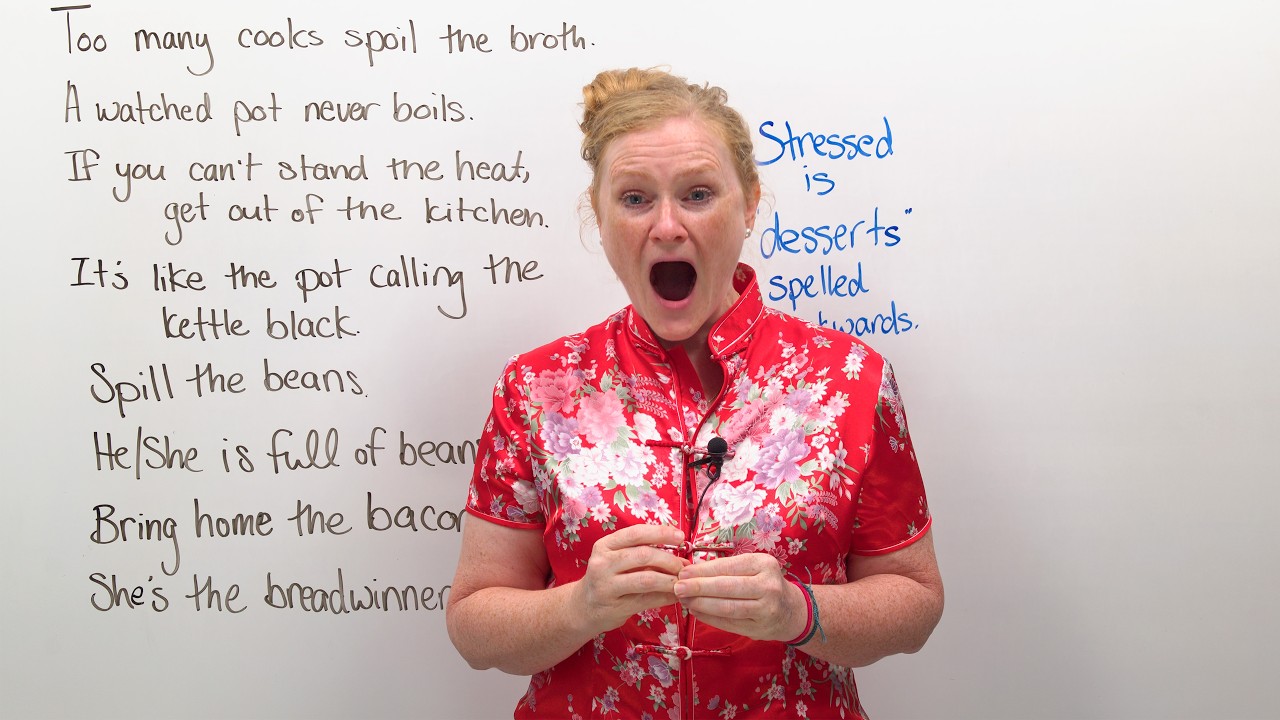 Too many cooks spoil the broth.
A watched pot never boils.
If you can't stand the heat,
get out of the kitchen.
It's like the pot calling the
kettle black.
Spill the beans.
He/She is full of bean
Bring home the bacon
She's the breadwinner
Stressed
is
"desserts"
spelled
kwards.